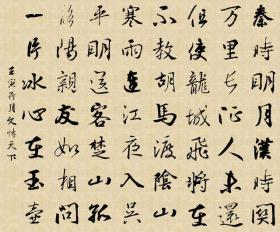 秦時明月漢時關
万里长征人未還
但使龍城飛將在
不教胡馬渡陰山
寒雨連江夜入吳
平明送客楚山孤
洛陽親友如相問
一片冰心在玉壺
壬寅荷月文博天下